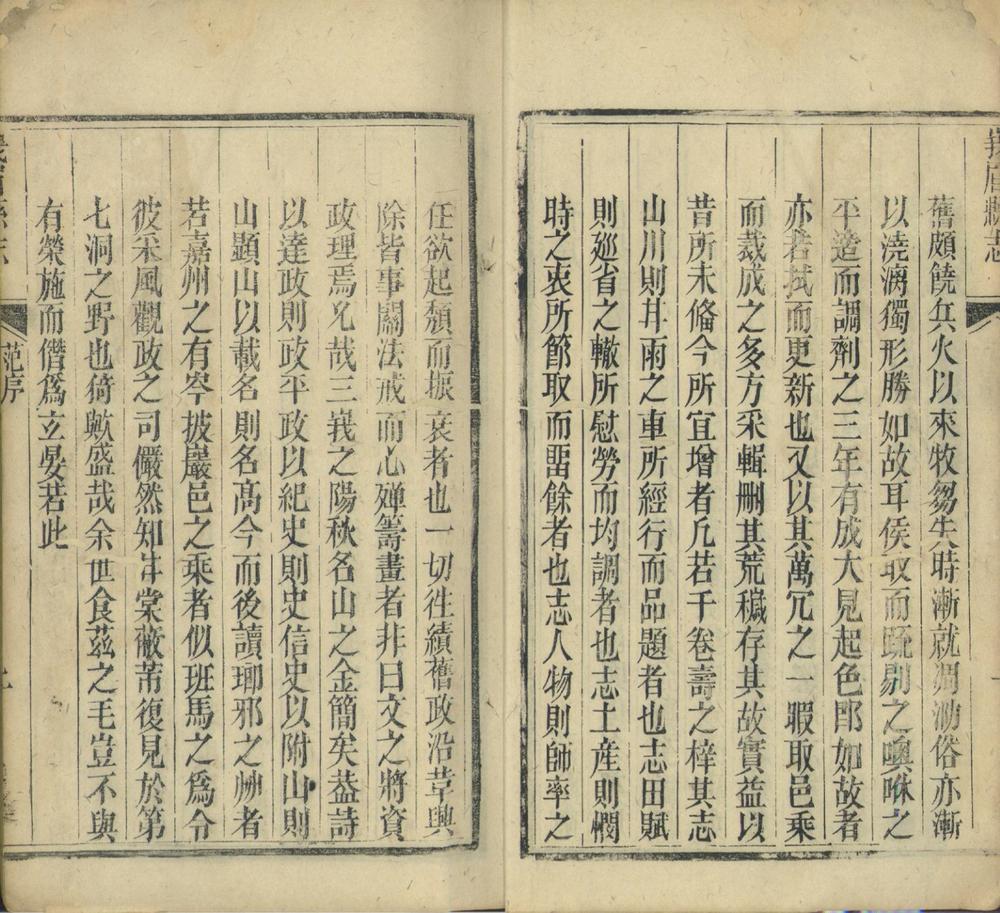 峩眉縣志
舊頗饒兵火以來牧芻失時漸就凋㳓俗亦漸
以澆漓獨形勝如故耳侯取而甦剔之噢咻之
平造而調劑之三年有成大見起色郎如故者
亦若拭而更新也又以其萬冗之一暇取邑乘
而裁成之多方采輯刪其荒穢存其故實益以
昔所未備今所宜增者凡若干卷壽之梓其志
山川則幷雨之車所經行而品題者也志田賦
則廵省之轍所慰勞而均調者也志土産則櫚
時之衷所節取而畱餘者也志人物則師率之
任欲起頽而振衰者也一切徃績舊政沿革與
除皆事關法戒而心殫籌畫者非曰文之將資
政理焉允哉三峩之陽秋名山之金簡矣葢詩
以達政則政平政以紀史則史信史以附山則
山顯山以載名則名高今而後讀瑘邪之𤙭者
若嘉州之有岑披巖邑之乘者似班馬之爲令
彼采風觀政之司儼然知甘棠蔽芾復見於第
七洞之野也猗歟盛哉余世食茲之毛豈不與
有榮施而僭爲玄晏若此
范序